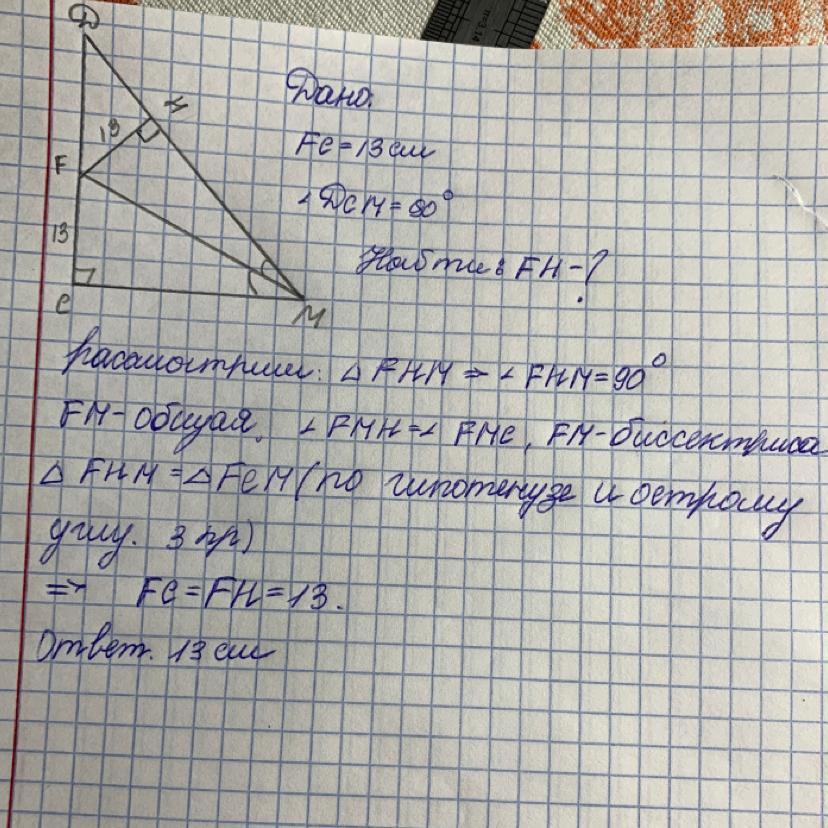 D
H
18
F
13
C
M
Дано:
FC = 13 см
∠DCM = 90°
Найти: FH - ?
Рассмотрим: △ FHM => ∠ FHM = 90°
FM - общая, ∠ FMH = ∠ FMC, FM - биссектриса
△ FHM = △ FCM (по гипотенузе и острому
углу. 3 пр)
=> FC = FH = 13.
Ответ. 13 см